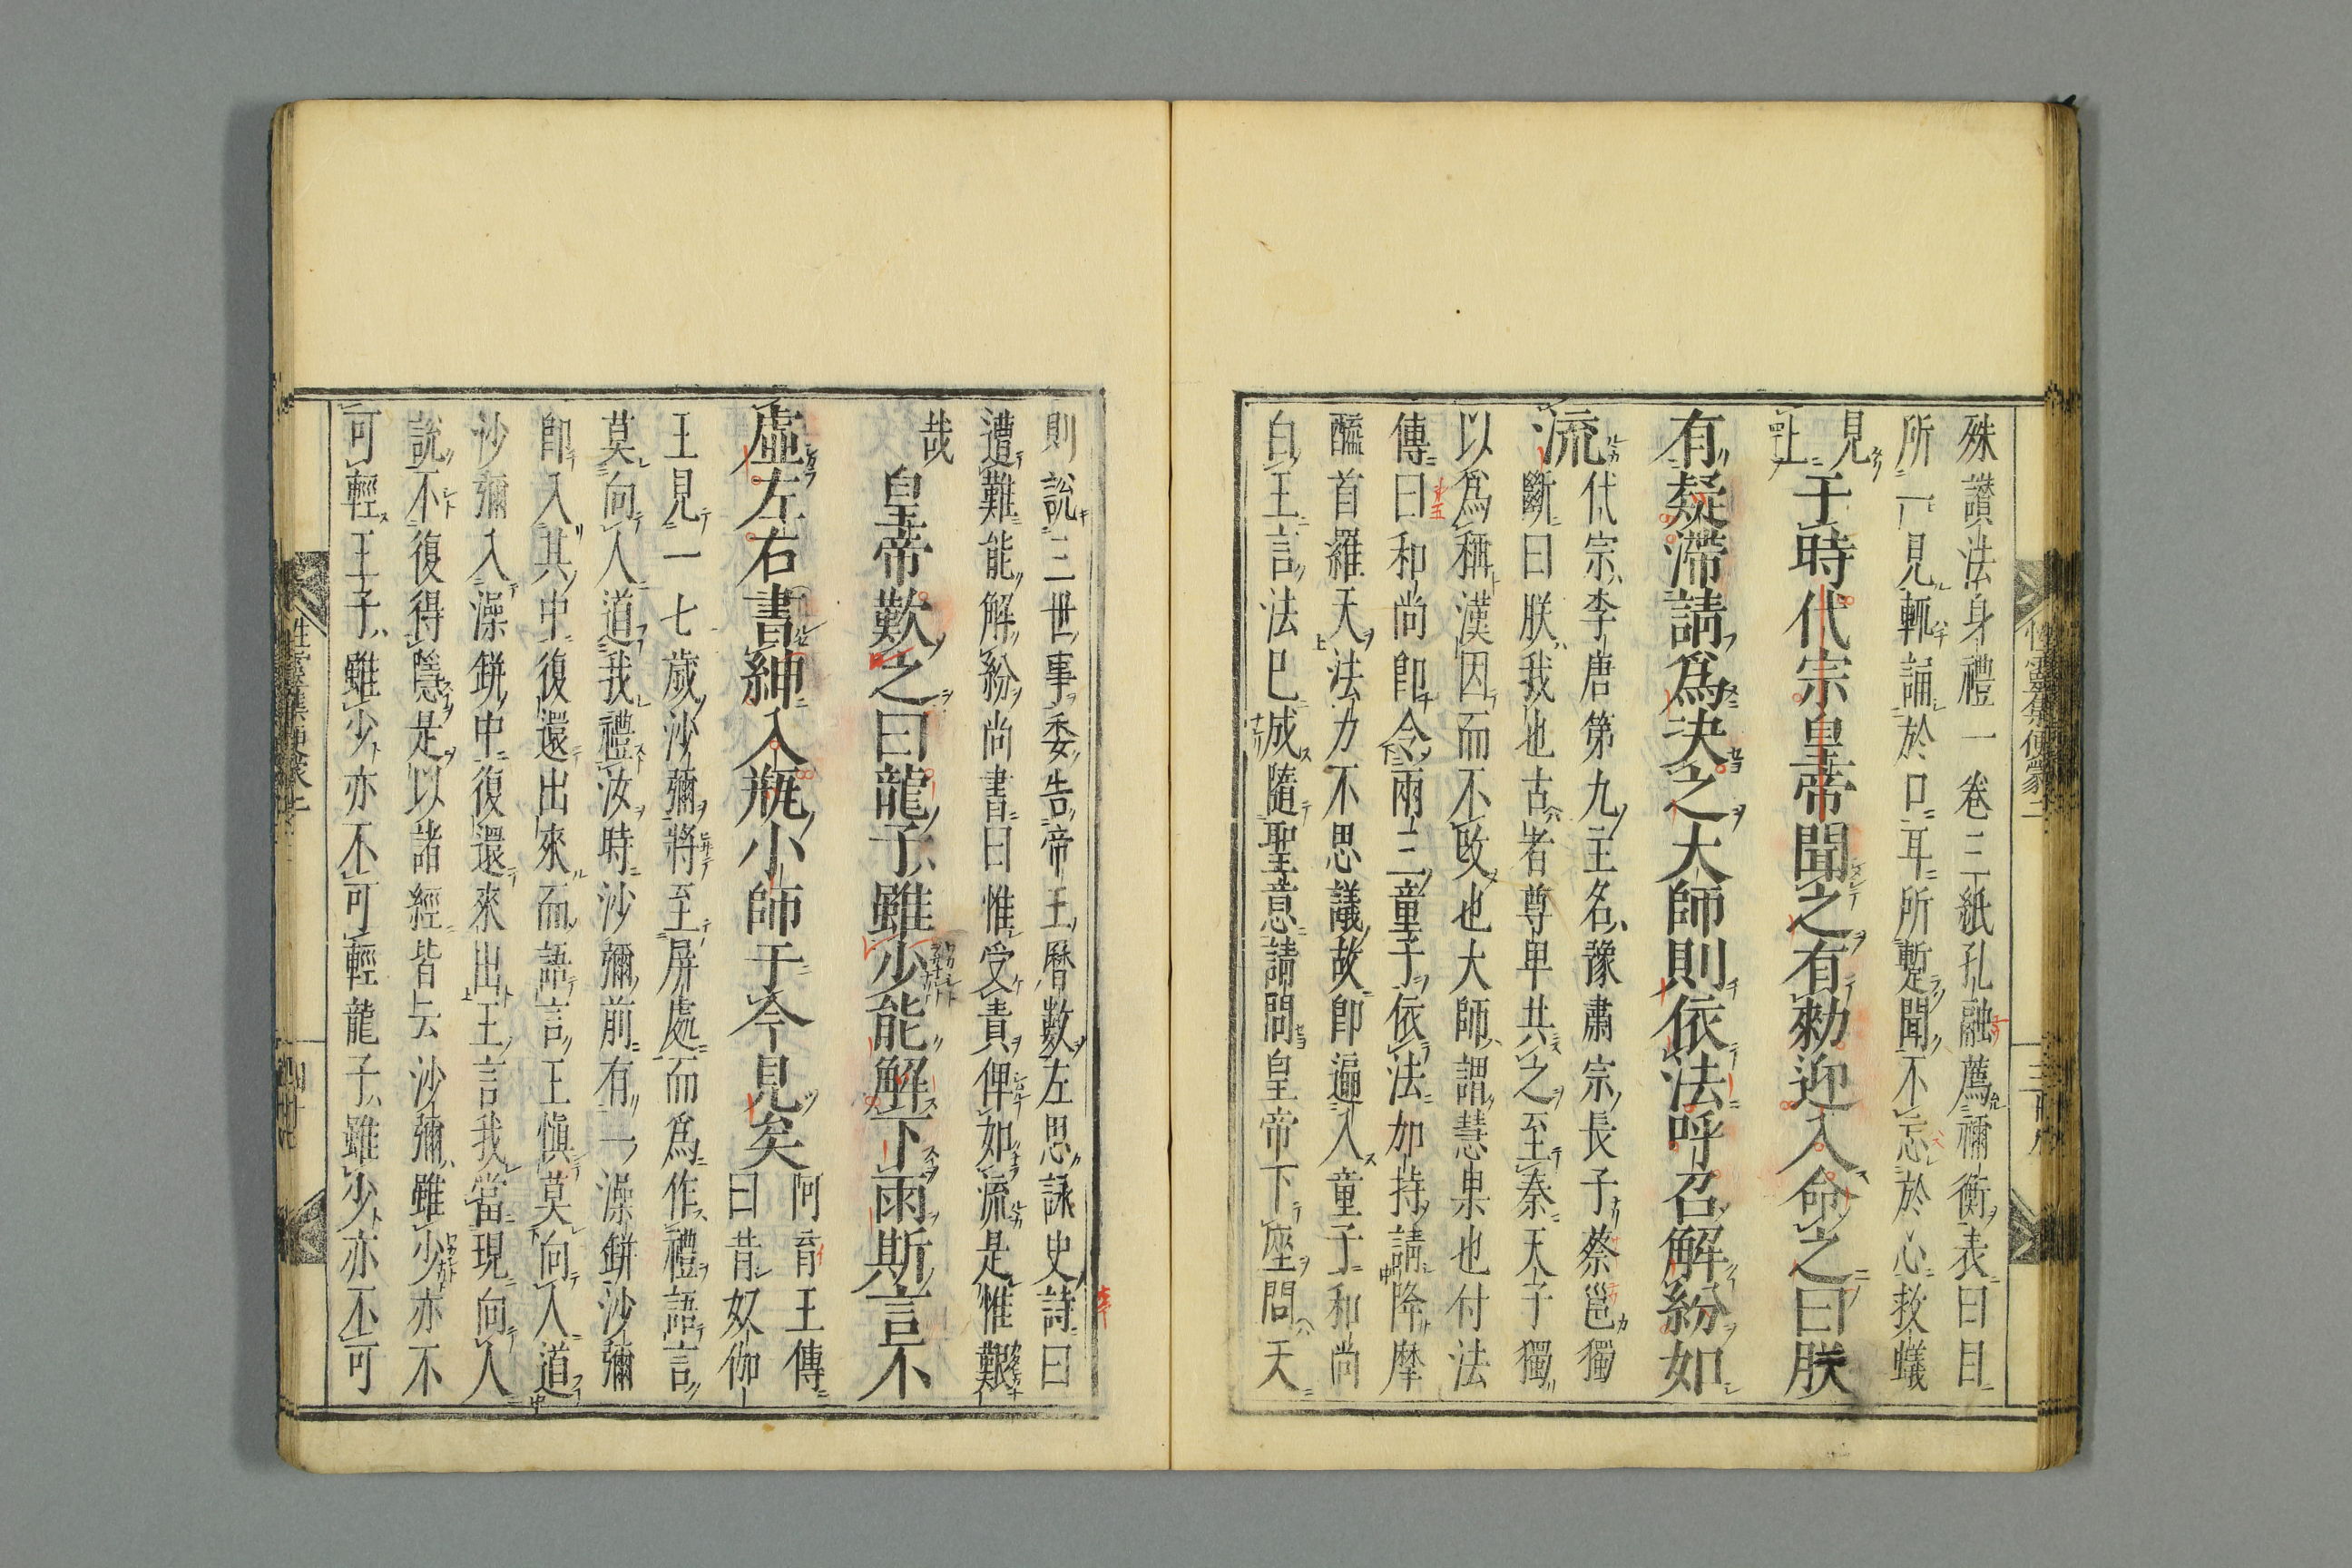 殊讃法身禮一卷三紙孔融薦禰衡表曰目
所一見輒誦於口耳所暫聞不忘於心救蟻
見
上于時代宗皇帝聞之有勅迎入命之曰朕
有疑滯請爲決之大師則依法呼召解紛如
流代宗李唐第九主名豫肅宗長子蔡邕獨
斷曰朕我也古者尊卑共之至秦天子獨
以爲稱漢因而不改也大師謂慧果也付法
傳曰和尚即令兩三童子依法加持請降摩
醯首羅天法力不思議故即遍入童子和尚
白王言法已成隨聖意請問皇帝下座問天
則說三世事委告帝王曆數左思詠史詩曰
遭難能解紛尚書曰惟受責俾如流是惟艱
哉
皇帝歎之曰龍子雖少能解下雨斯言不
虛左右書紳入瓶小師于今見矣阿育王傳
曰昔奴伽
王見一七歲沙彌將至屏處而爲作禮語言
莫向人道我禮汝時沙彌前有一澡缾沙彌
即入其中復還出來而語言王愼莫向人道
沙彌入澡缾中復還來出王言我當現向人
說不復得隱是以諸經皆云沙彌雖少亦不
可輕王子雖少亦不可輕龍子雖少亦不可